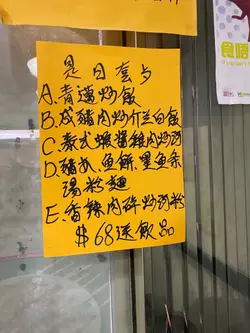 是日套歺
A.青邊炒飯
B.咸豬肉炒介兰白飯
C.泰式蝦醬雞肉炒河
D.豬扒、魚餅、墨魚条
湯粉麵
E.香辣肉碎炒河粉
$68送飲品